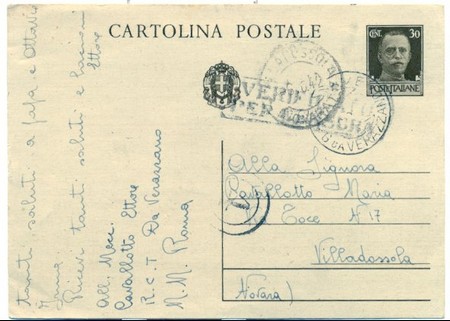 CARTOLINA POSTALE
CENT. 30
POSTE ITALIANE
VERIFICATO
PER CENSURA
DA VERAZZANO
Alla Signora
Cavallotto Maria
Via Toce N° 17
Villadossola
(Novara)
All. Mecc.
Cavallotto Ettore
R. C. T Da Verazzano
M. M. Roma
Tanti saluti a papà e Ottavio
Ricevi tanti saluti e
Ettore